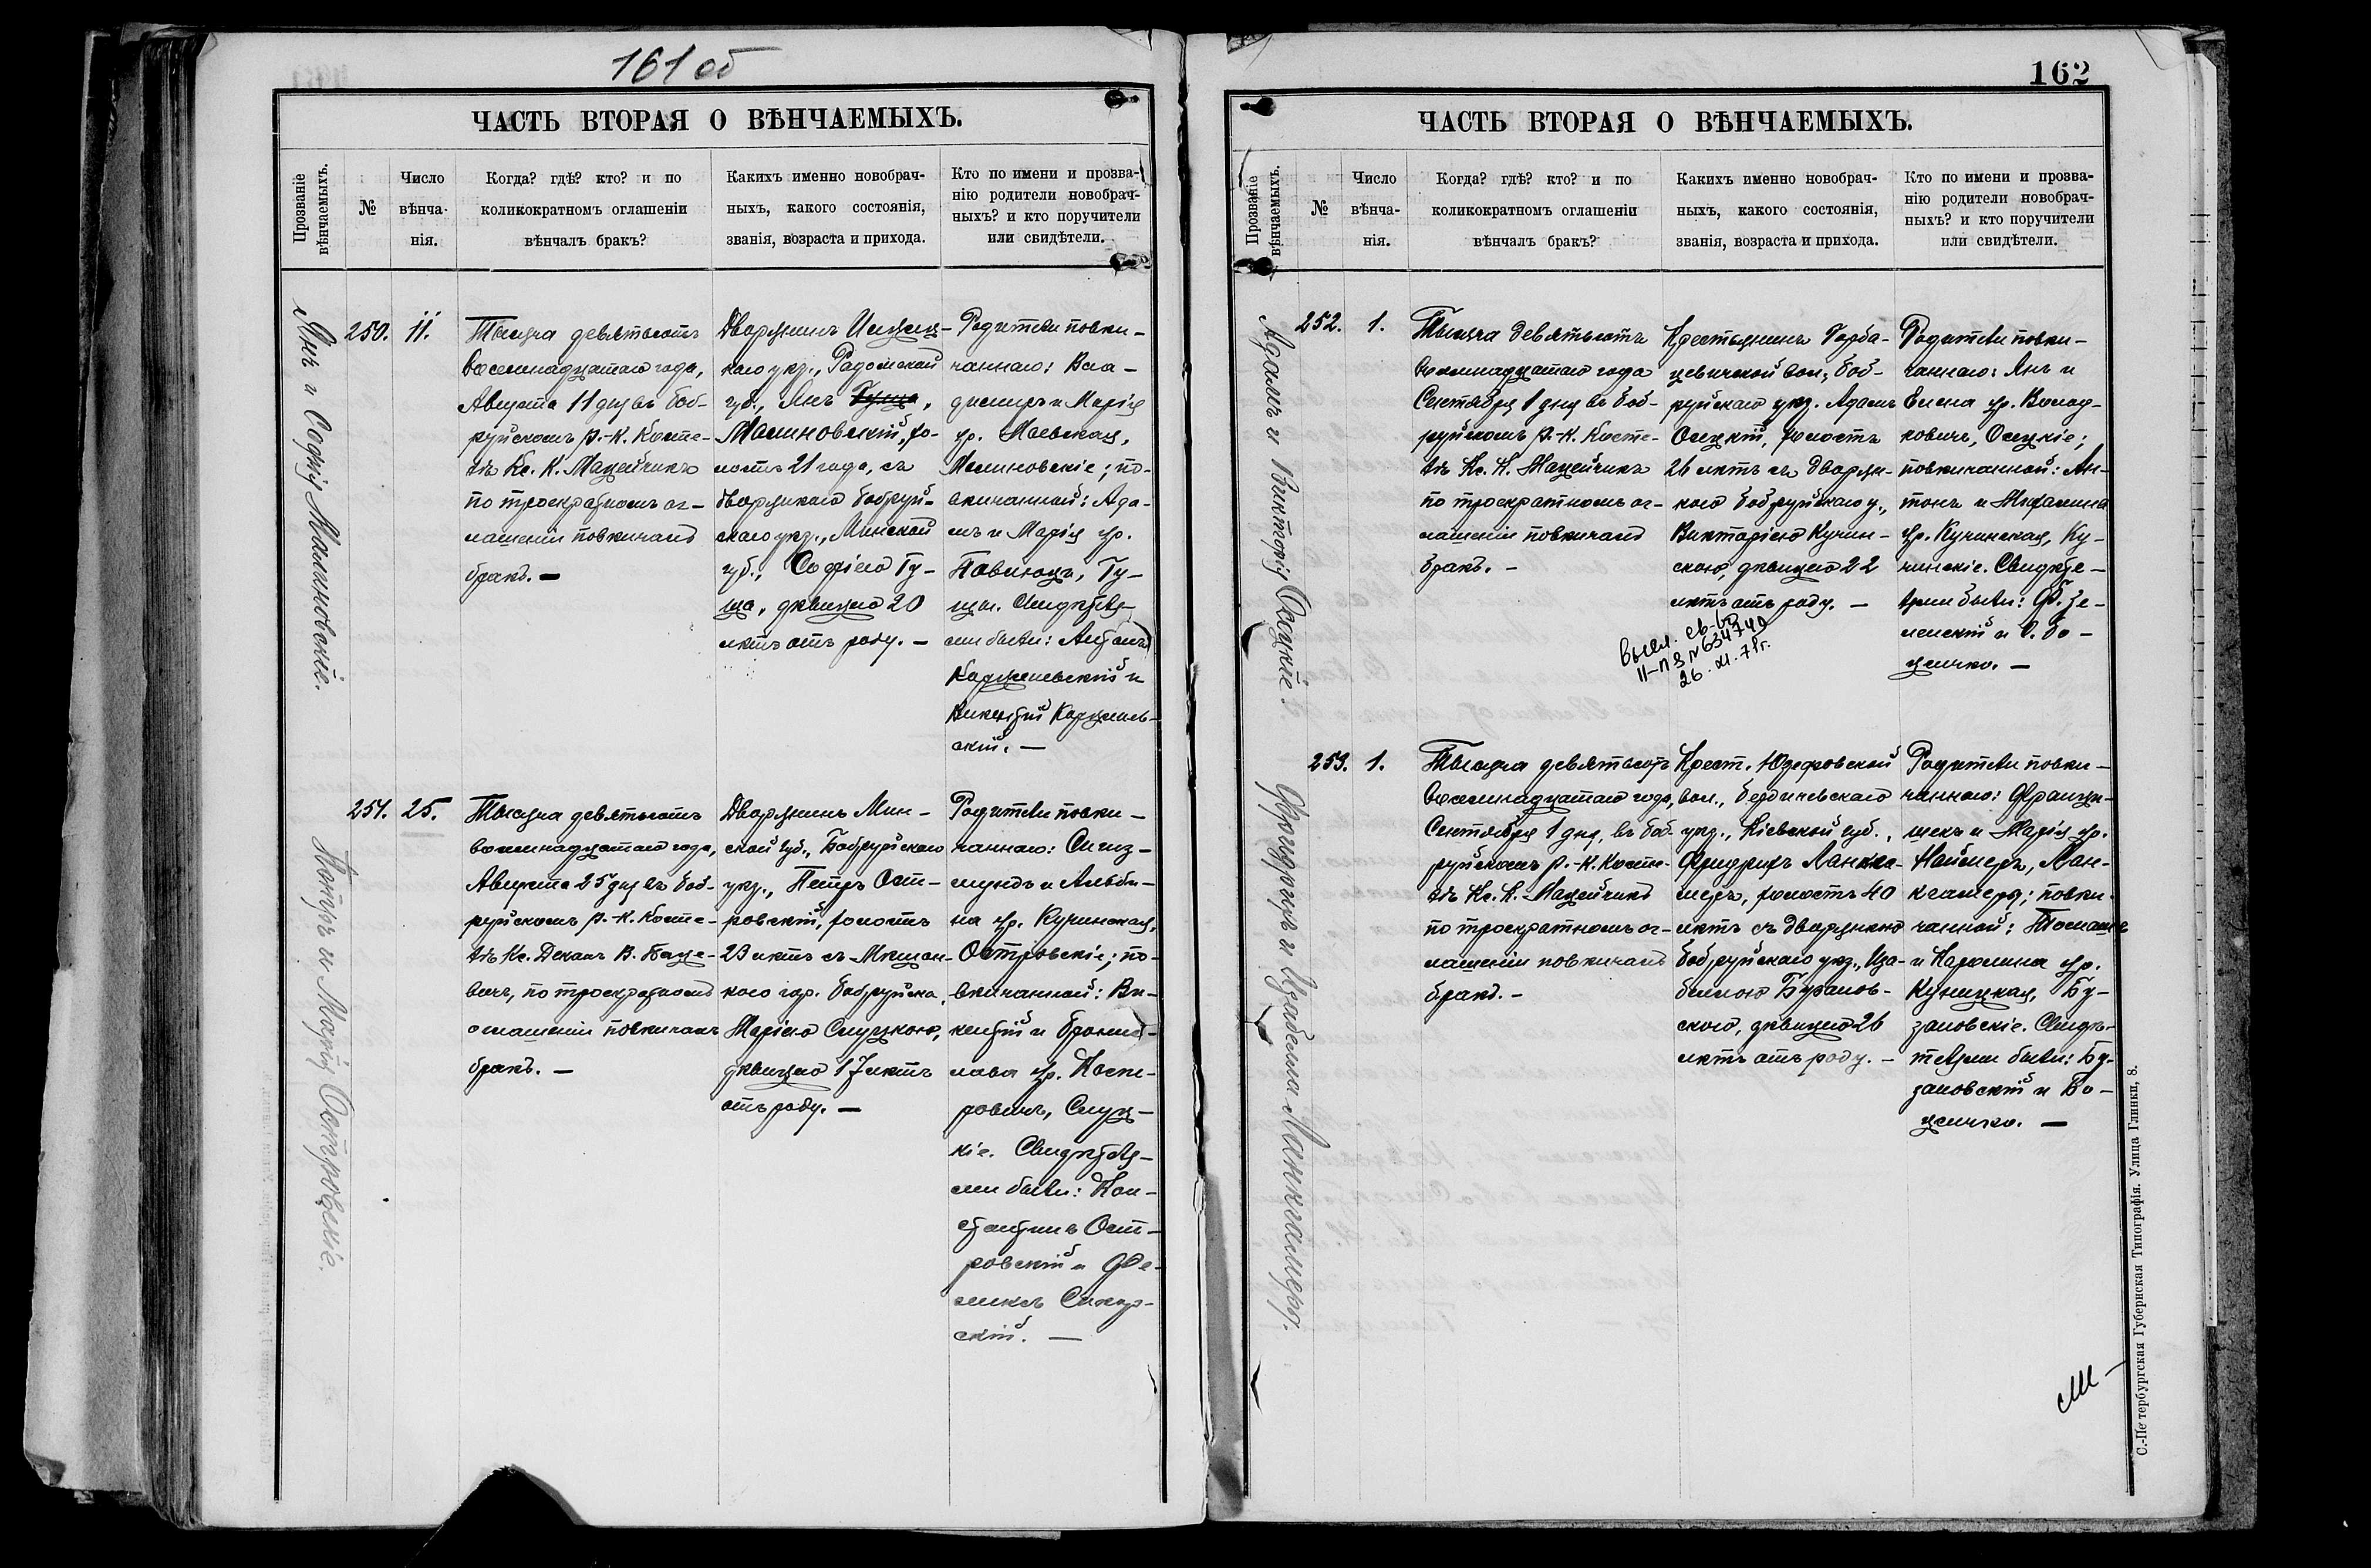 161 об
ЧАСТЬ ВТОРАЯ О ВѢНЧАЕМЫХЪ.
Прозваніе вѣнчаемыхъ.
№
Число вѣнча- нія.
Когда? гдѣ? кто? и по
коликократномъ оглашеніи
вѣнчалъ бракъ?
Какихъ именно новобрач-
ныхъ, какого состоянія,
званія, возраста и прихода.
Кто по имени и прозва-
нію родители новобрач-
ныхъ? и кто поручители
или свидѣтели.
Янъ и Софія Малиновскіе.
250.
11.
Тысяча девятьсотъ
восемнадцатаго года,
Августа 11 дня въ Боб-
руйскомъ Р.-К. Косте-
лѣ Кс. К. Мацейчикъ
по троекратномъ ог-
лашеніи повѣнчалъ
бракъ. —
Дворянинъ
каго уѣз., Радомской
губ., Янъ Гуща,
Малиновскій, юно-
лѣтъ 21 года, съ
дворянкою Бобруй-
скаго уѣз., Минской
губ., Софіею Гу-
ща, дѣвицею 20
лѣтъ отъ роду. —
Родители повѣн-
чаннаго: Вла-
диміръ и Марія
ур. Маевская,
Малиновскіе; по-
вѣнчанной: Ада-
мъ и Марія ур.
Павлюцъ, Гу-
щы. Свидѣтеля-
ми были: Антонъ
и
Викентій
скій. —
Петръ и Марія Островскіе.
251.
25.
Тысяча девятьсотъ
восемнадцатаго года,
Августа 25 дня въ Боб-
руйскомъ Р.-К. Косте-
лѣ Кс. Деканъ В. Баце-
вичъ, по троекратномъ
оглашеніи повѣнчалъ
бракъ. —
Дворянинъ Мин-
ской губ., Бобруйскаго
уѣз., Петръ Ост-
ровскій,
23 лѣтъ съ Мѣщан-
кою гор. Бобруйска,
Маріею Слуцкою,
дѣвицею 17 лѣтъ
отъ роду. —
Родители повѣн-
чаннаго: Сигиз-
мундъ и Альби-
на ур. Кучинская,
Островскіе; по-
вѣнчанной: Ви-
кентій и Брони-
слава ур. Каспе-
ровичъ, Слуц-
кіе. Свидѣтеля-
ми были: Кон-
стантинъ Ост-
ровскій и Фе-
ликсъ Сикор-
скій. —
162
ЧАСТЬ ВТОРАЯ О ВѢНЧАЕМЫХЪ.
Прозваніе вѣнчаемыхъ.
№
Число вѣнча- нія.
Когда? гдѣ? кто? и по
коликократномъ оглашеніи
вѣнчалъ бракъ?
Какихъ именно новобрач-
ныхъ, какого состоянія,
званія, возраста и прихода.
Кто по имени и прозва-
нію родители новобрач-
ныхъ? и кто поручители
или свидѣтели.
Адамъ и Викторія Осуцкіе.
252.
1.
Тысяча девятьсотъ
восемнадцатаго года
Сентября 1 дня въ Боб-
руйскомъ Р.-К. Косте-
лѣ Кс. К. Мацейчикъ
по троекратномъ ог-
лашеніи повѣнчалъ
бракъ. —
Крестьянинъ Горба-
цевичской вол., Боб-
руйскаго уѣз. Адамъ
26 лѣтъ съ дворян-
кою Бобруйскаго у.,
Викторіею Кучин-
скою, дѣвицею 22
лѣтъ отъ роду. —
Родители повѣн-
чаннаго: Янъ и
Елена ур. Волод-
ковичъ,
повѣнчанной: Ан-
тонъ и
ур. Кучинская, Ку-
чинскіе. Свидѣте-
лями были: Ф. Зе-
ленскій и
Высл. св-во
II-ПЗ № 634740
26. XI. 71г.
Фридрихъ и Изабелла Ланкгамеръ.
253.
1.
Тысяча девятьсотъ
восемнадцатаго года,
Сентября 1 дня, въ Боб-
руйскомъ Р.-К. Косте-
лѣ Кс. К. Мацейчикъ
по троекратномъ ог-
лашеніи повѣнчалъ
бракъ. —
Крест. Юзефовской
вол., Бердичевскаго
уѣз., Кіевской губ.,
Фридрихъ
40
лѣтъ съ дворянкою
Бобруйскаго уѣз., Иза-
беллою
скою, дѣвицею 26
лѣтъ отъ роду. —
Родители повѣн-
чаннаго: Францы-
шекъ и Марія ур.
повѣн-
чанной:
и Каролина ур.
Куницкая, Бу-
зановскіе. Свидѣ-
телями были: Бу-
зановскій и
С.-Петербургская Губернская Типографія. Улица Глинки, 8.